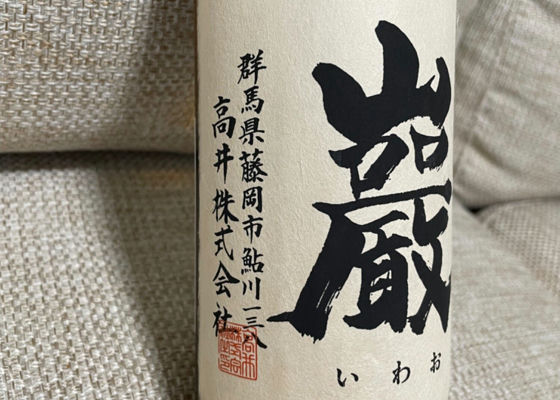 巖
いわお
群馬県藤岡市鮎川一三八
高井株式会社